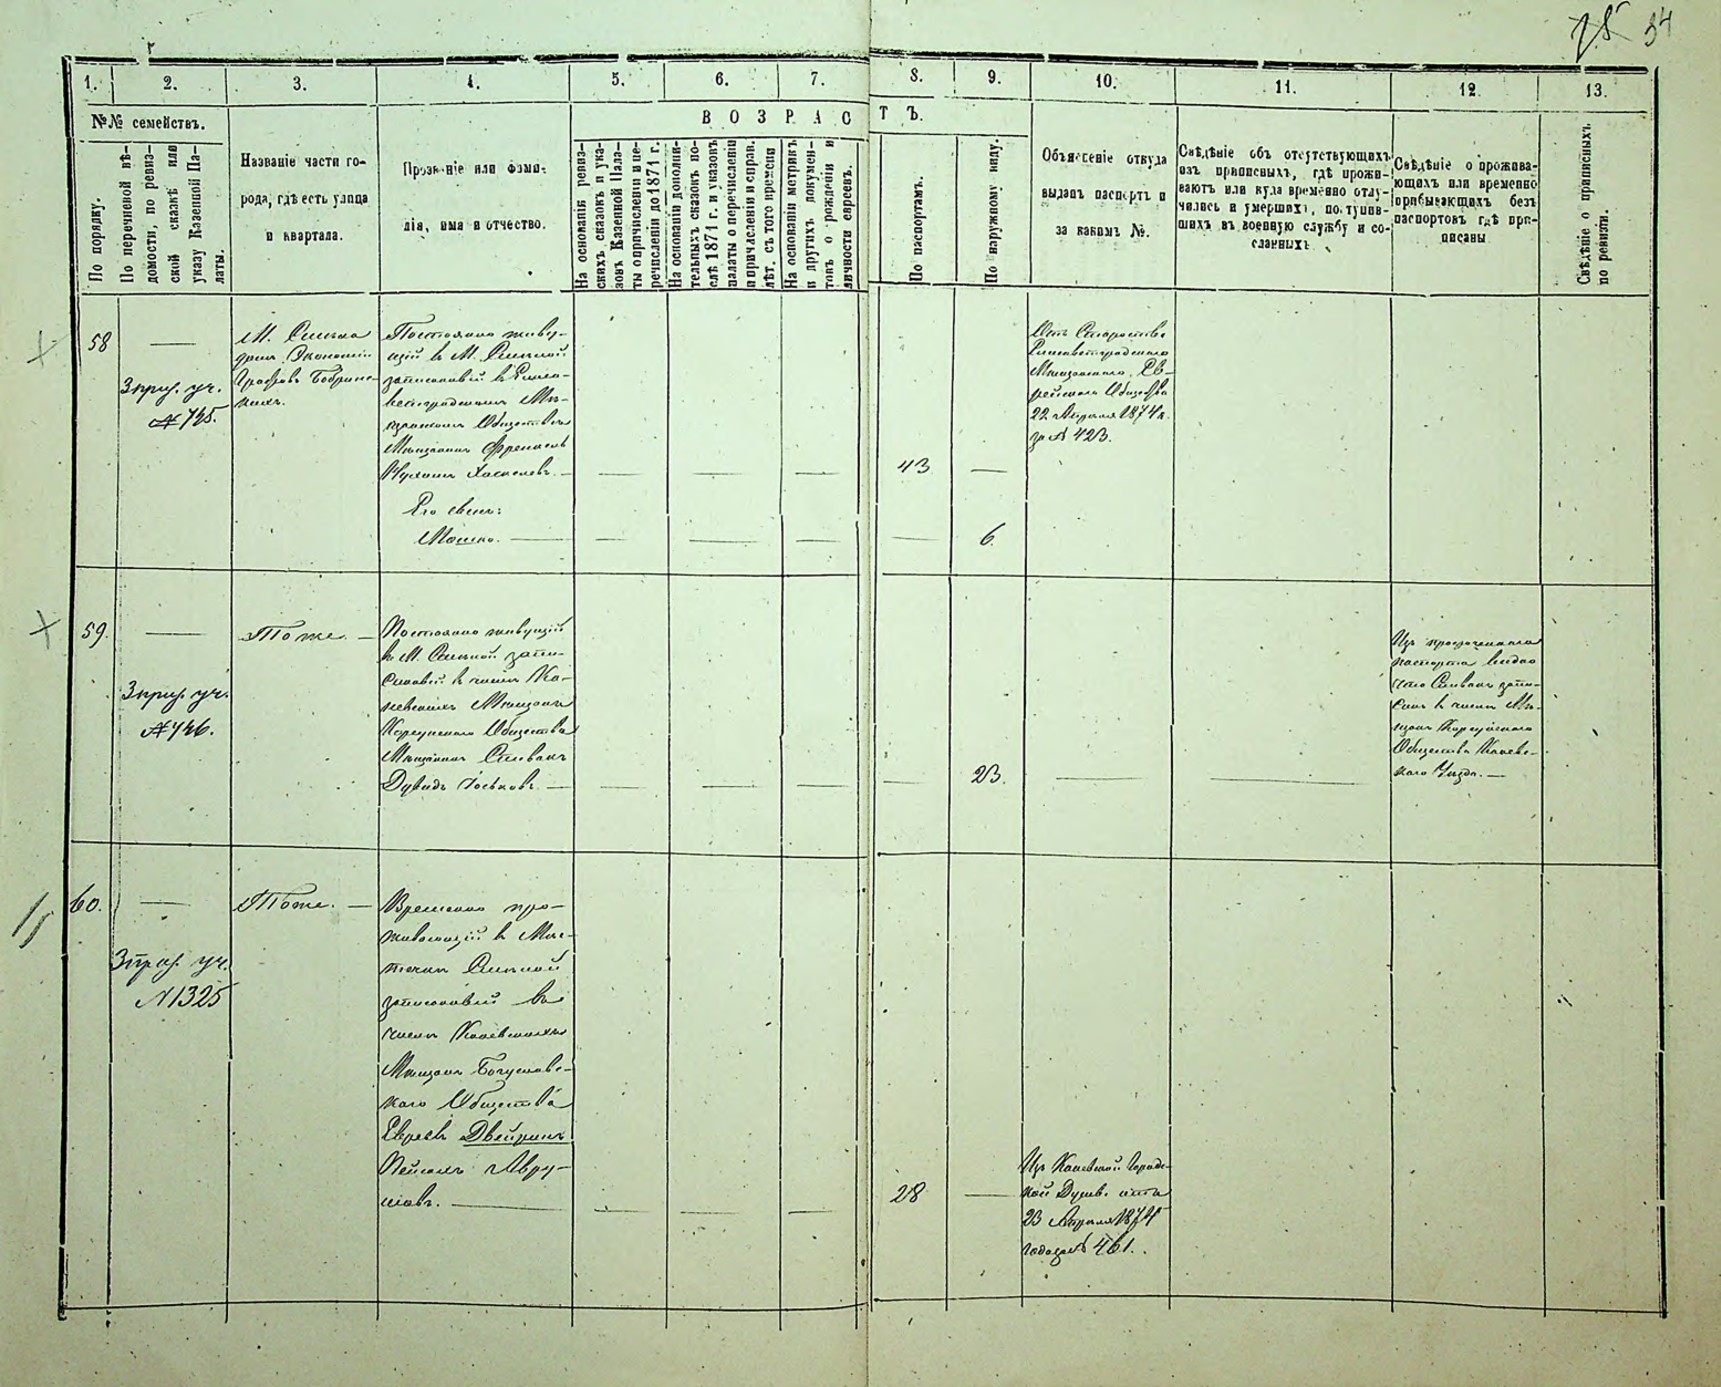 75 54
1. 2. 3. 4. 5. 6. 7. 8. 9. 10. 11. 12 13.
№№ семействъ.
В О З Р А С Т Ъ.
По порядку.
По перечневой вѣ-
домости, по ревиз-
ской сказкѣ или
указу Казенной Па-
латы.
Названіе части го-
рода, гдѣ есть улица
и квартала.
Прозваніе или фами-
лія, имя и отчество.
На основаніи ревиз-
скихъ сказокъ и ука-
зовъ Казенной Пала-
ты о причисленіи и пе-
речисленіи до 1871 г.
На основаніи дополни-
тельныхъ сказокъ по-
слѣ 1871 г. и указовъ
палаты о перечисленіи
и причисленіи и справ.
лѣт. съ того времени
На основаніи метрикъ
и другихъ докумен-
товъ о рожденіи и
личности евреевъ.
По паспортамъ.
По наружному виду.
Объясненіе откуда
выданъ паспортъ и
за какимъ №.
Свѣдѣніе объ отсутствующихъ
изъ приписныхъ, гдѣ прожи-
ваютъ или куда временно отлу-
чились и умершихъ, поступив-
шихъ въ военную службу и со-
сланныхъ.
Свѣдѣніе о прожива-
ющихъ или временно
прибывающихъ безъ
паспортовъ гдѣ при-
писаны
Свѣдѣніе о приписныхъ
по ревизіи.
58
3 приз. уч.
№ 745.
М. Смѣла
домъ Экономіи
Графовъ Бобринс-
кихъ.
Постоянно живу-
щій въ М. Смѣлой
записанный въ Елиса-
ветградскомъ Мѣ-
щанскомъ Обществѣ
Мѣщанинъ Френкель
Нухимъ Хаскелевъ.
Его сынъ:
Мошко.
43
6.
Отъ Старосты
Елисаветградскаго
Мѣщанскаго Ев-
рейскаго Общества
22 Апрѣля 1874 г.
за № 423.
59.
3 приз. уч.
№ 746.
Тоже.
Постоянно живущій
въ М. Смѣлой запи-
санный въ числѣ Ка-
невскихъ Мѣщанъ
Корсунскаго Общества
Мѣщанинъ Спивакъ
Дувидъ Іоськовъ.
23.
Изъ просроченнаго
паспорта видно
что Спивакъ запи-
санъ въ числѣ Мѣ-
щанъ Корсунскаго
Общества Каневс-
каго Уѣзда.
60.
3 приз. уч.
№ 1325
Тоже.
Временно про-
живающій въ Мѣс-
течкѣ Смѣлой
записанный въ
числѣ Каневскихъ
Мѣщанъ Богуславс-
каго Общества
Еврей Двейринъ
Пейсахъ Авру-
мовъ.
28
Изъ Каневской Городс-
кой Думы отъ
23 Апрѣля 1874
года за № 461.